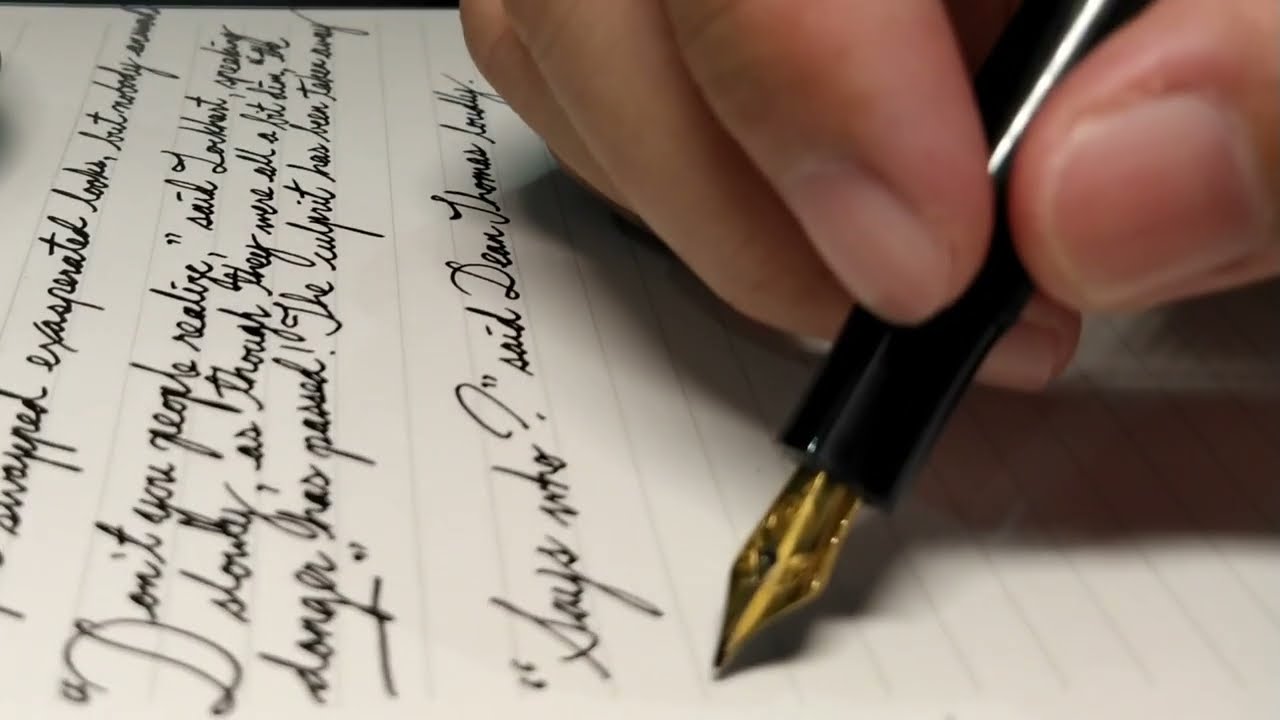 swapped exasperated looks, but nobody
"Don't you people realize," said Lockhart, speaking
slowly, as though they were all a bit dim, "the
danger has passed! The culprit has been taken away
—"
"Says who?" said Dean Thomas loudly.